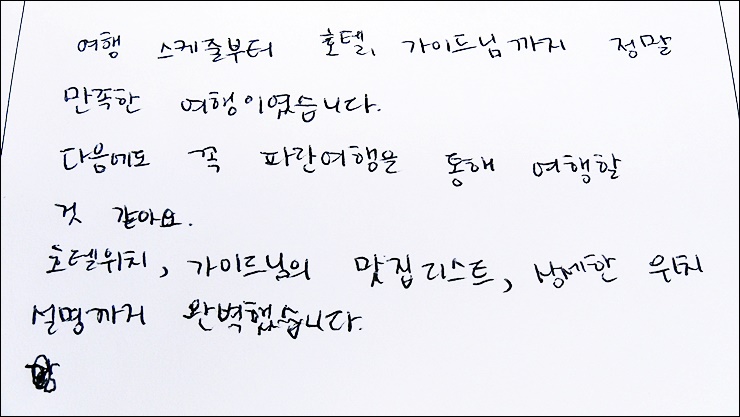 여행 스케쥴부터 호텔, 가이드님까지 정말
만족한 여행이였습니다.
다음에도 꼭 파란여행을 통해 여행할
것 같아요.
호텔위치, 가이드님의 맛집리스트, 상세한 위치
설명까지 완벽했습니다.